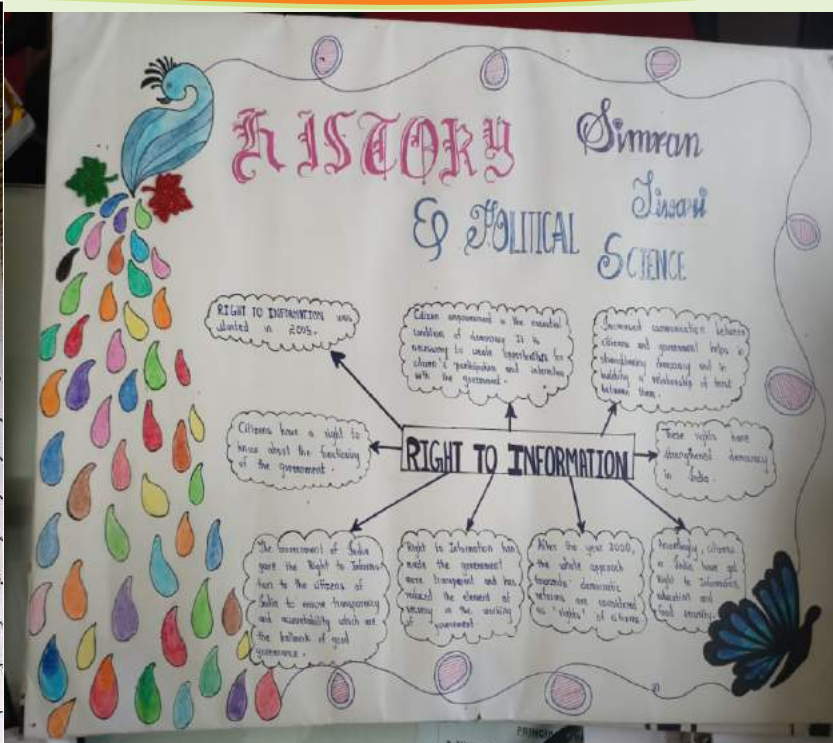 HISTORY
Simran
Tiwari
& POLITICAL SCIENCE
RIGHT TO INFORMATION was
started in 2005.
Citizen empowerment is the essential
condition of democracy It is
necessary to create opportunities for
citizen's participation and interaction
with the government.
Increased communication between
citizens and government helps in
strengthening democracy and in
building a relationship of trust
between them.
Citizens have a right to
know about the functioning
of the government.
RIGHT TO INFORMATION
These rights have
strengthened democracy
in India.
The Government of India
gave the Right to Informa
tion to the citizens of
India to ensure transparency
and accountability which are
the hallmark of good
governance.
Right to Information has
made the government
more transparent and has
reduced the element of
secrecy in the working
of government
After the year 2000,
the whole approach
towards democratic
reforms are considered
as "rights" of citizens
Accordingly, citizens
in India have got
Right to Information,
education and
food security.